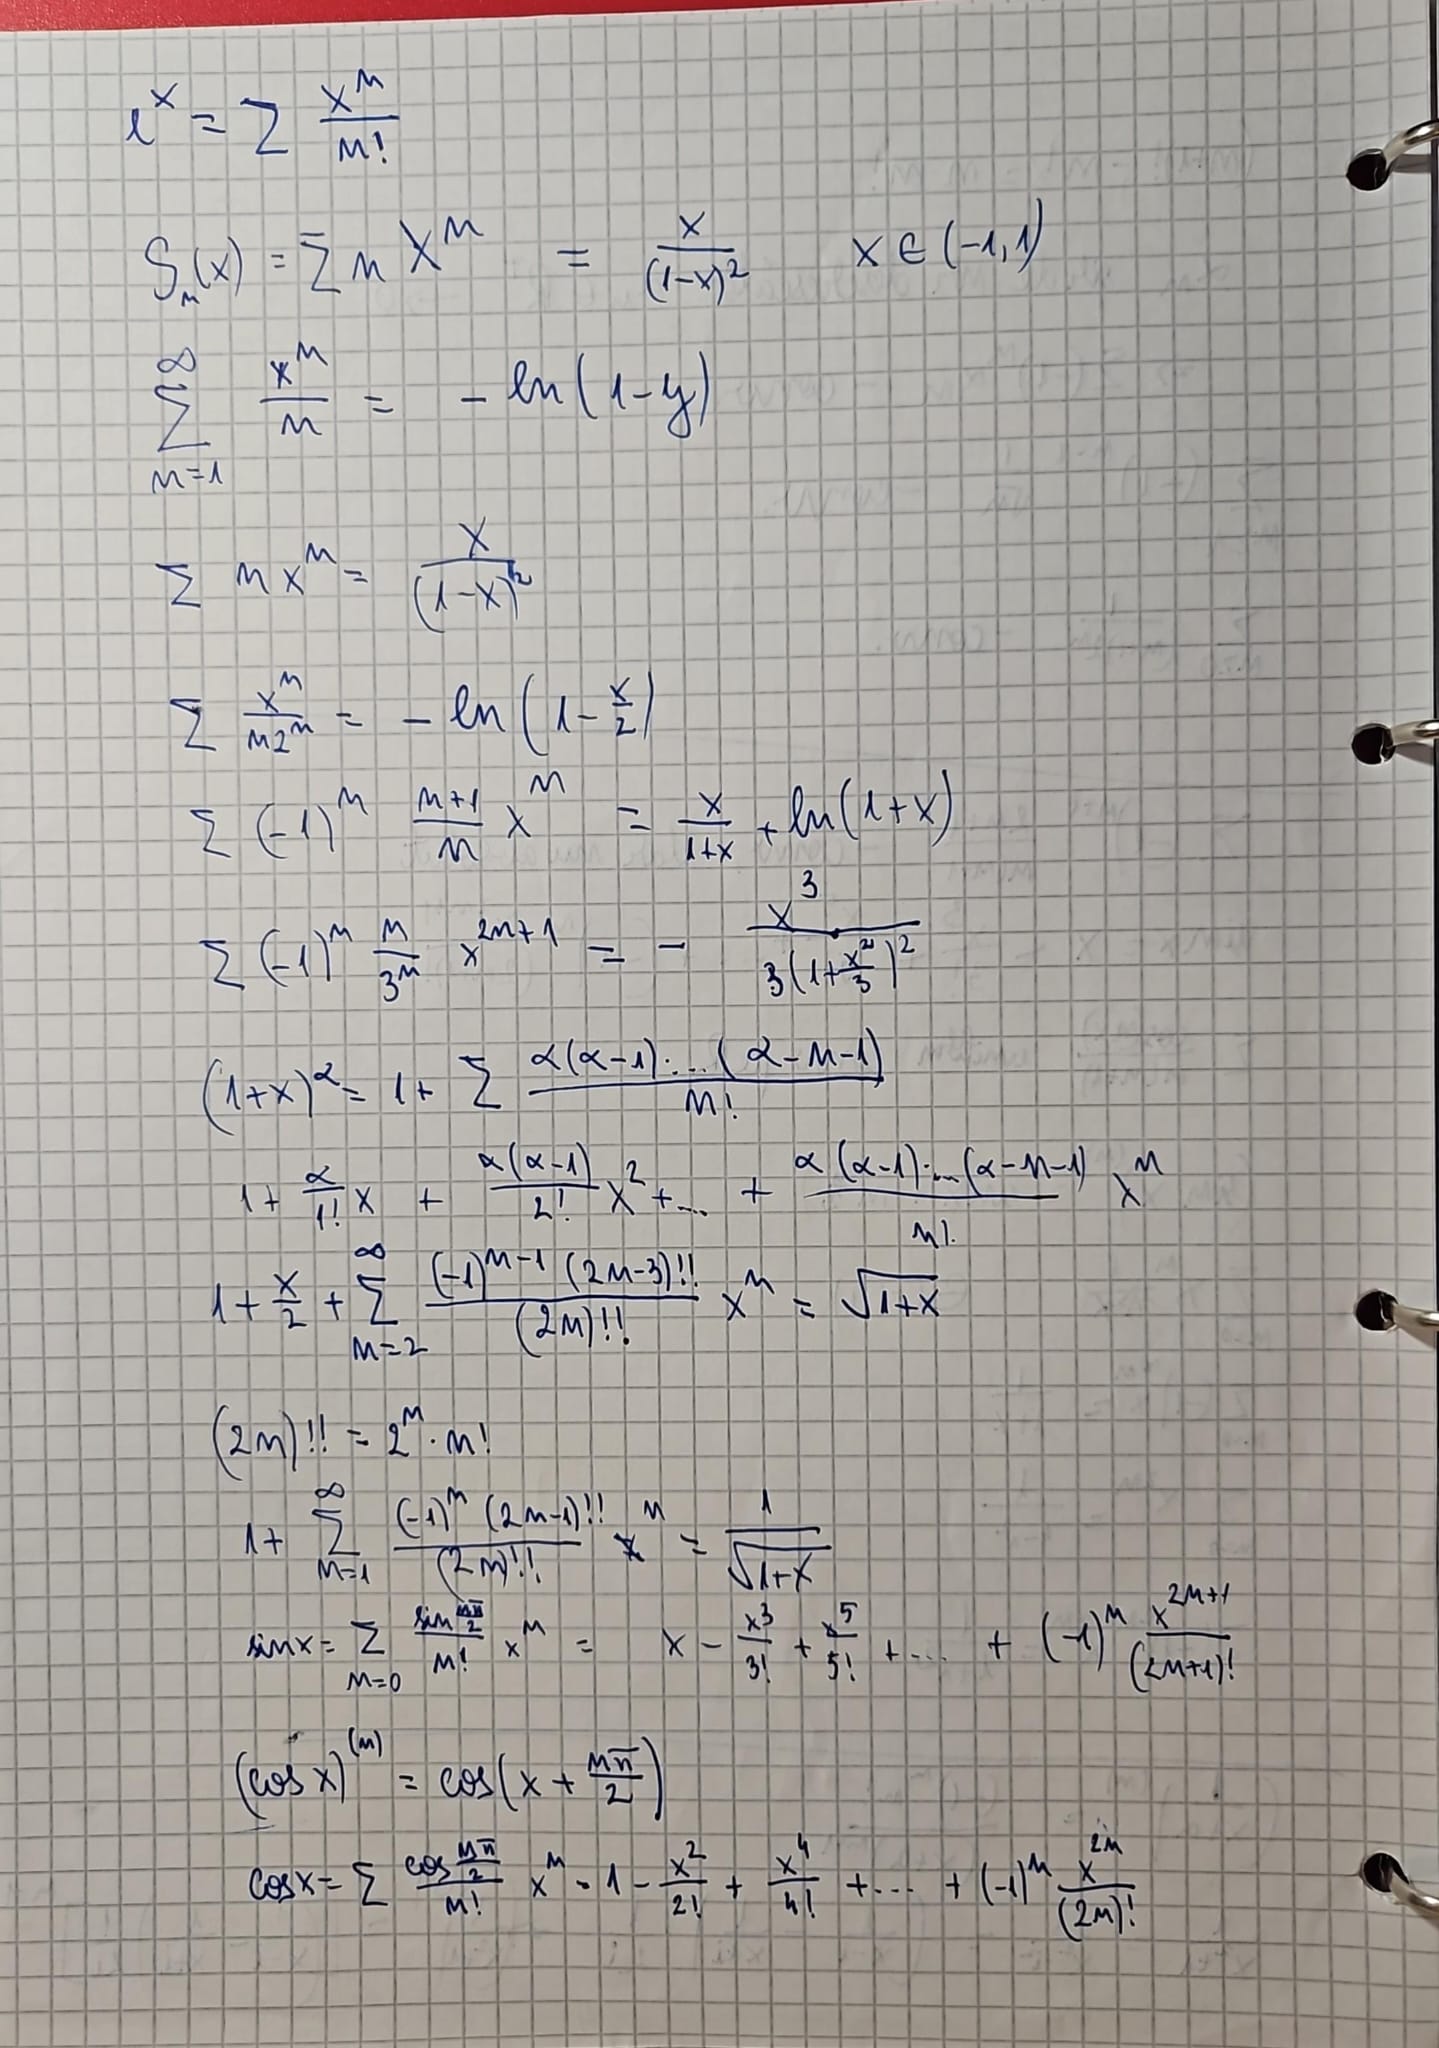 e^x = Σ x^n/n!
S_n(x) = Σ n x^n = x/(1-x)^2 x ∈ (-1,1)
∞Σn=1 x^n/n = - ln(1-y)
Σ n x^n = x/(1-x)^2
Σ x^n/(n2^n) = - ln(1 - x/2)
Σ (-1)^n (n+1)/n x^n = x/(1+x) + ln(1+x)
Σ (-1)^n n/3^n x^(2n+1) = - x^3/(3(1+x^2/3)^2)
(1+x)^α = 1 + Σ α(α-1)·...(α-n-1)/n!
1 + α/1! x + α(α-1)/2! x^2 + ... + α(α-1)·...(α-n-1)/n! x^n
1 + x/2 + ∞Σn=2 (-1)^(n-1) (2n-3)!!/(2n)!! x^n = √(1+x)
(2n)!! = 2^n · n!
1 + ∞Σn=1 (-1)^n (2n-1)!!/(2n)!! x^n = 1/√(1+x)
sinx = Σn=0 sin(nπ/2)/n! x^n = x - x^3/3! + x^5/5! + ... + (-1)^n x^(2n+1)/(2n+1)!
(cos x)^(n) = cos(x + nπ/2)
cosx = Σ cos(nπ/2)/n! x^n = 1 - x^2/2! + x^4/4! + ... + (-1)^n x^(2n)/(2n)!